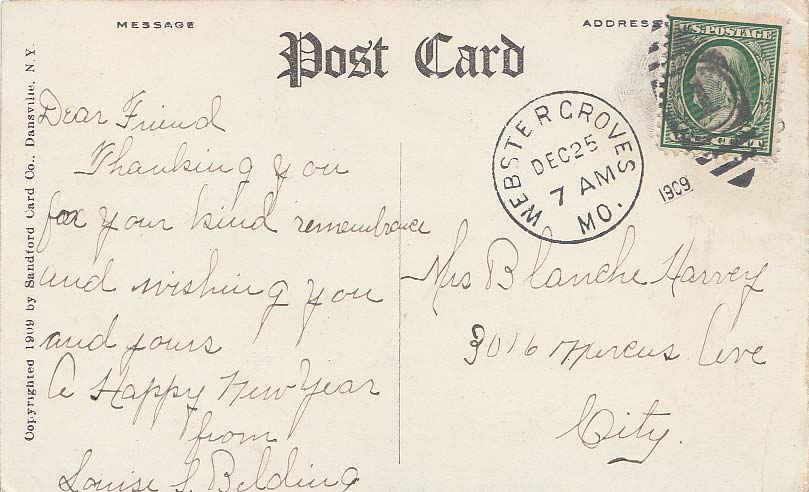 MESSAGE
ADDRESS
Post Card
U.S. POSTAGE
WEBSTER GROVES
DEC 25
7 AM
MO.
1909
Dear Friend
Thanking you
for your kind remembrance
and wishing you
and yours
A Happy New Year
from
Louise S. Belding
Mrs Blanche Harvey
3016 Ave
City.
Copyrighted 1909 by Sandford Card Co., Dansville, N. Y.